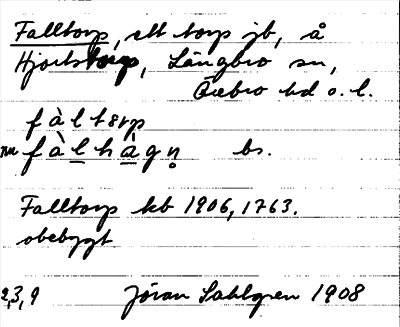 Falltorp, ett torp jb, å
Hjortstorp, Längbro sn,
Örebro hd o. l.
fàltɐrp
nu fàlhàgn̥ bs.
Falltorp kb 1906, 1763.
obebygt
2,3,9 Jöran Sahlgren 1908